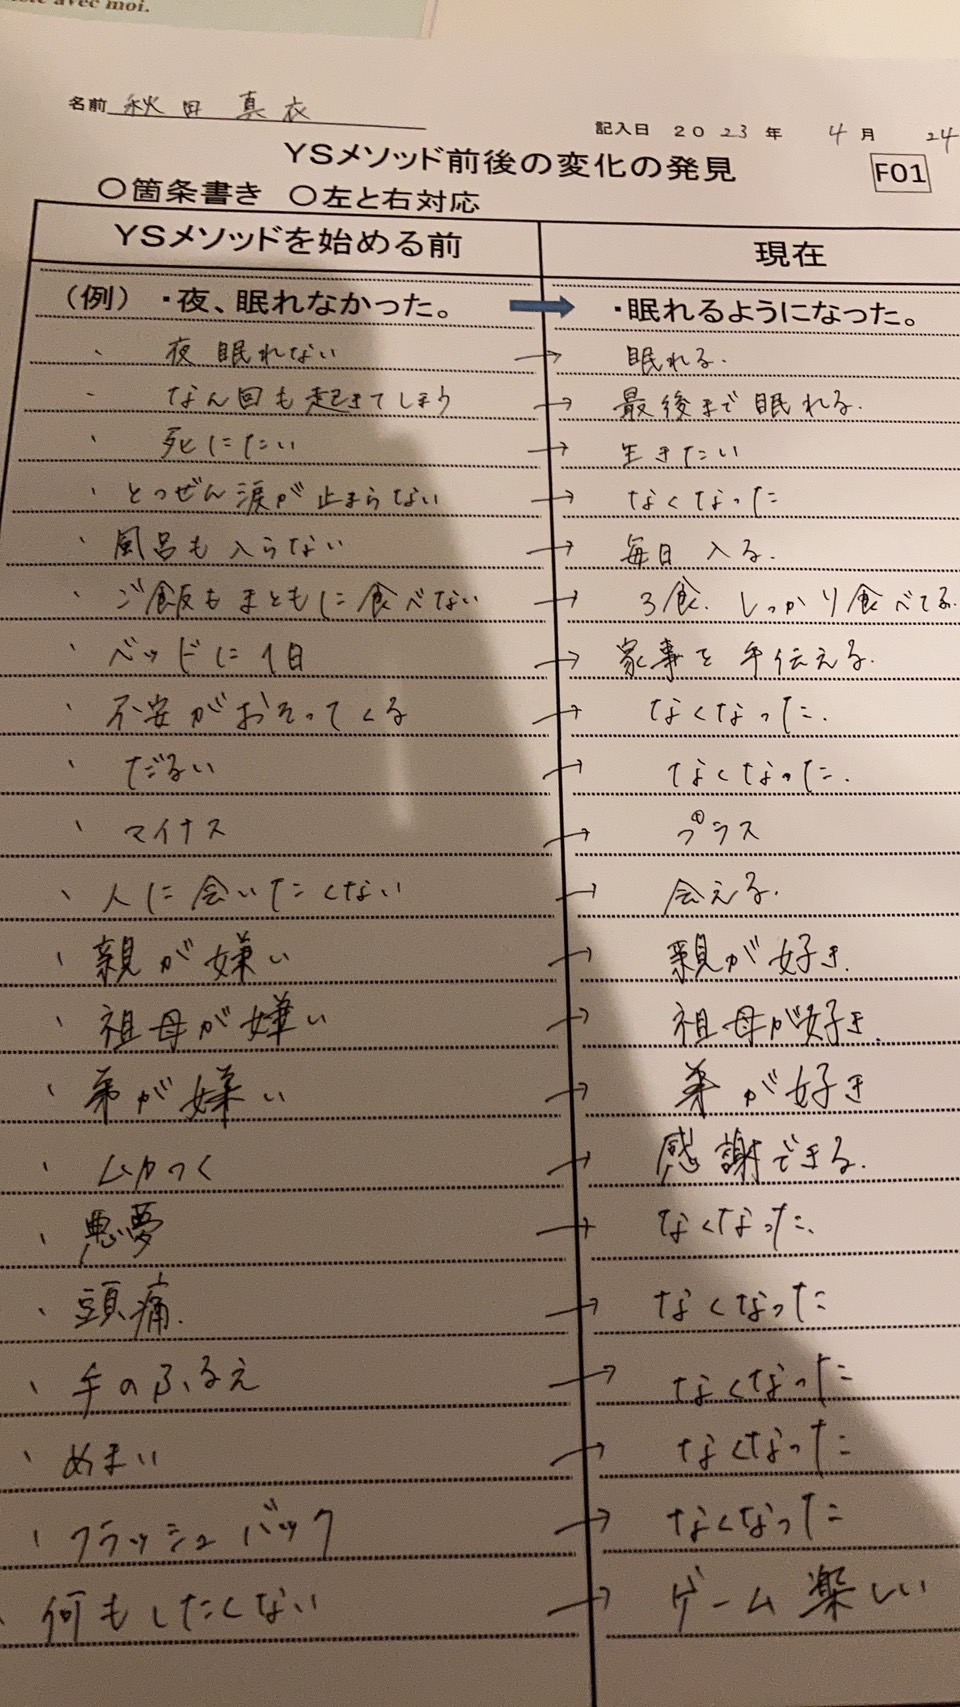 avec moi.
名前 秋田 真衣
記入日 2023年 4月 24
YSメソッド前後の変化の発見
F01
〇箇条書き 〇左と右対応
YSメソッドを始める前 現在
(例)・夜、眠れなかった。 ➡ ・眠れるようになった。
・ 夜 眠れない → 眠れる.
・ なん回も起きてしまう → 最後まで眠れる.
・ 死にたい → 生きたい
・ とつぜん涙が止まらない → なくなった
・ 風呂も入らない → 毎日入る.
・ ご飯もまともに食べない → 3食.しっかり食べてる.
・ ベッドに1日 → 家事を手伝える.
・ 不安がおそってくる → なくなった.
・ だるい → なくなった.
・ マイナス → プラス
・ 人に会いたくない → 会える.
・ 親が嫌い → 親が好き.
・ 祖母が嫌い → 祖母が好き.
・ 弟が嫌い → 弟が好き
・ ムカつく → 感謝できる.
・ 悪夢 → なくなった.
・ 頭痛. → なくなった
・ 手のふるえ → なくなった
・ めまい → なくなった
・ フラッシュバック → なくなった
・ 何もしたくない → ゲーム楽しい